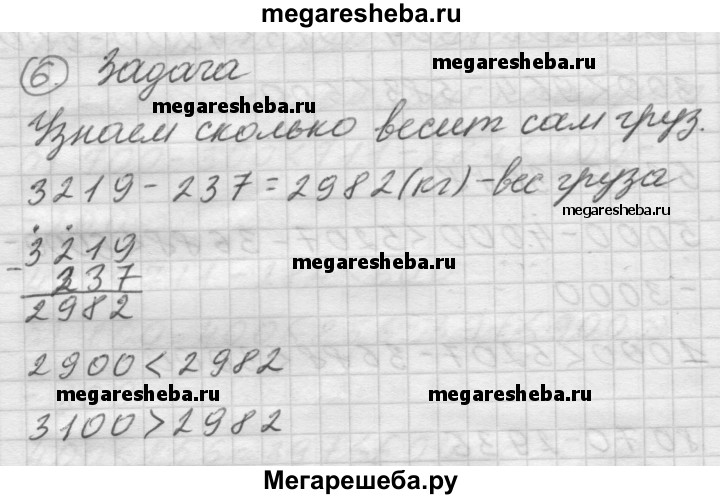 megaresheba.ru
6. Задача
megaresheba.ru
megaresheba.ru
Узнаем сколько весит сам груз.
3219 - 237 = 2982 (кг) - вес груза
megaresheba.ru
3219
- 237
2982
megaresheba.ru
2900 < 2982
megaresheba.ru
megaresheba.ru
3100 > 2982
Мегарешеба.ру